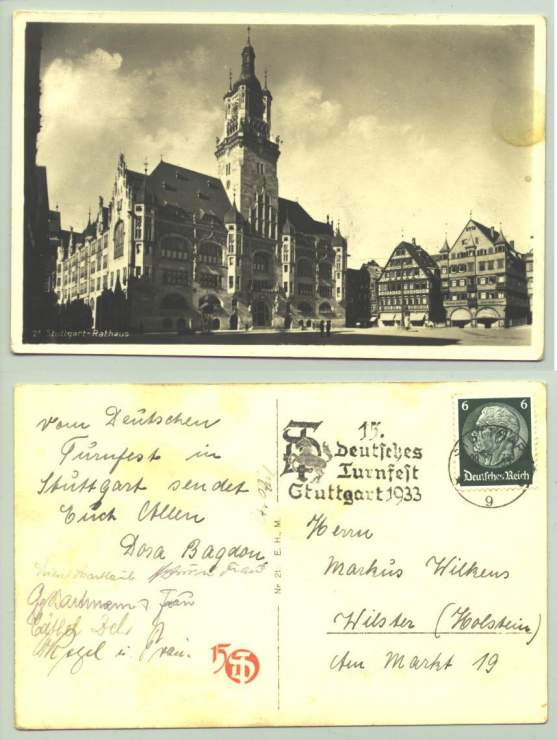 21 Stuttgart-Rathaus
vom Deutschen
Turnfest in
Stuttgart sendet
Euch Allen
Dora Bagdon
Frau
G. Bartmann & Frau
u. Frau.
15
Nr. 21. E. H., M.
15.
Deutsches
Turnfest
Stuttgart 1933
6 6
Deutsches Reich
9
Herrn
Markus Wilkens
Wilster (Holstein)
Am Markt 19